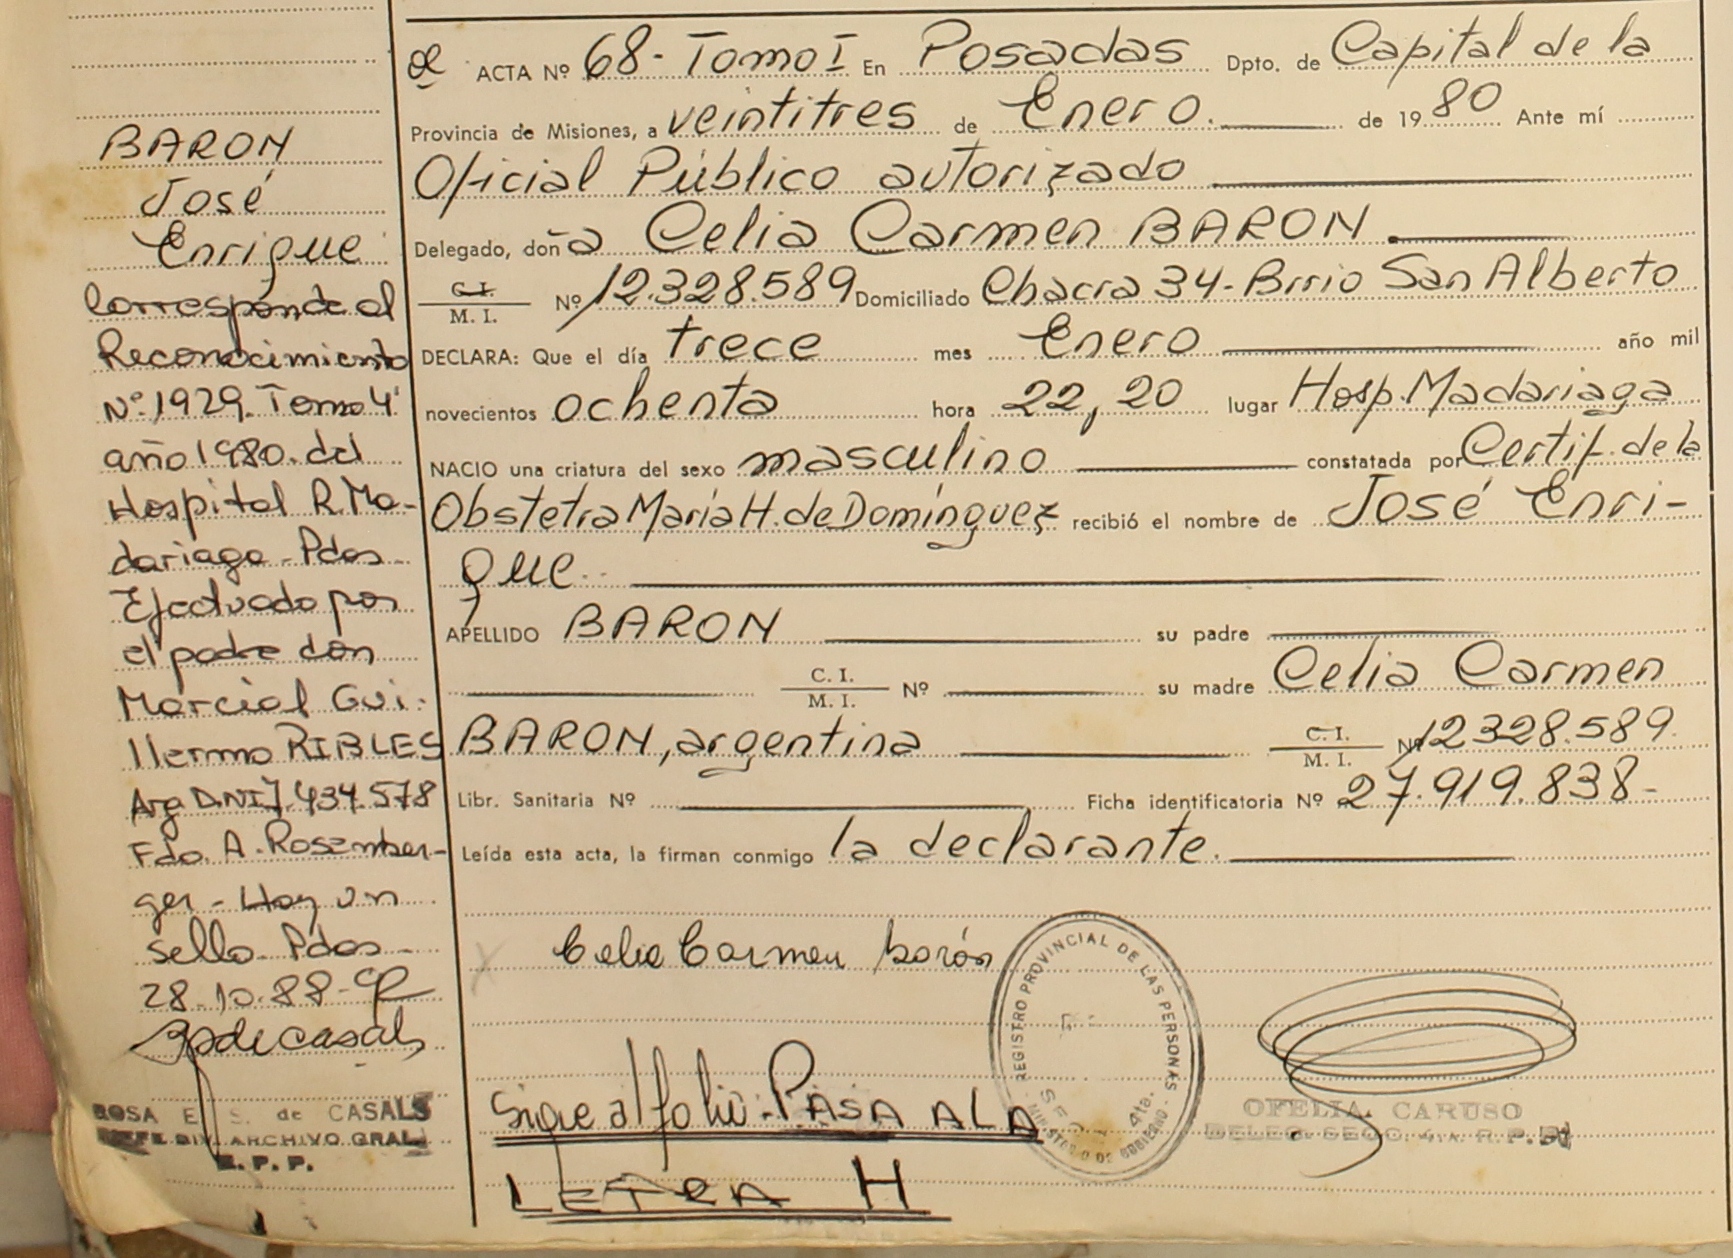 BARON
José
Enrique
Corresponde al
Reconocimiento
Nº 1929. Tomo 4º
año 1980. del
Hospital R. Ma-
dariaga - Pdas
Efectuado por
el padre don
Marcial Gui-
llermo RIBLES
Arg D.N.I 7.434.578
Fdo. A. Rosember-
ger - Hay un
sello - Pdas
28-10-88-
ROSA E. S. de CASALS
JEFE DIV. ARCHIVO GRAL.
R. P. P.
ACTA Nº 68 - Tomo I En Posadas Dpto. de Capital de la
Provincia de Misiones, a veintitres de Enero. de 1980 Ante mí
Oficial Público autorizado
Delegado, doña Celia Carmen BARON
C. I. / M. I. Nº 12.328.589 Domiciliado Chacra 34 - Brrio San Alberto
DECLARA: Que el día trece mes Enero año mil
novecientos ochenta hora 22,20 lugar Hosp. Madariaga
NACIO una criatura del sexo masculino constatada por Certif. de la
Obstetra María H. de Domínguez recibió el nombre de José Enri-
que
APELLIDO BARON su padre
C. I. / M. I. Nº su madre Celia Carmen
BARON, argentina C. I. / M. I. Nº 12328.589
Libr. Sanitaria Nº Ficha identificatoria Nº 27.919.838-
Leída esta acta, la firman conmigo la declarante.
Celia Carmen Barón
REGISTRO PROVINCIAL DE LAS PERSONAS
MINISTERIO DE GOBIERNO
4ta.
OFELIA CARUSO
DELEG. SECC. 4ta. R. P. P.
Sigue al folio: PASA A LA
LETRA H